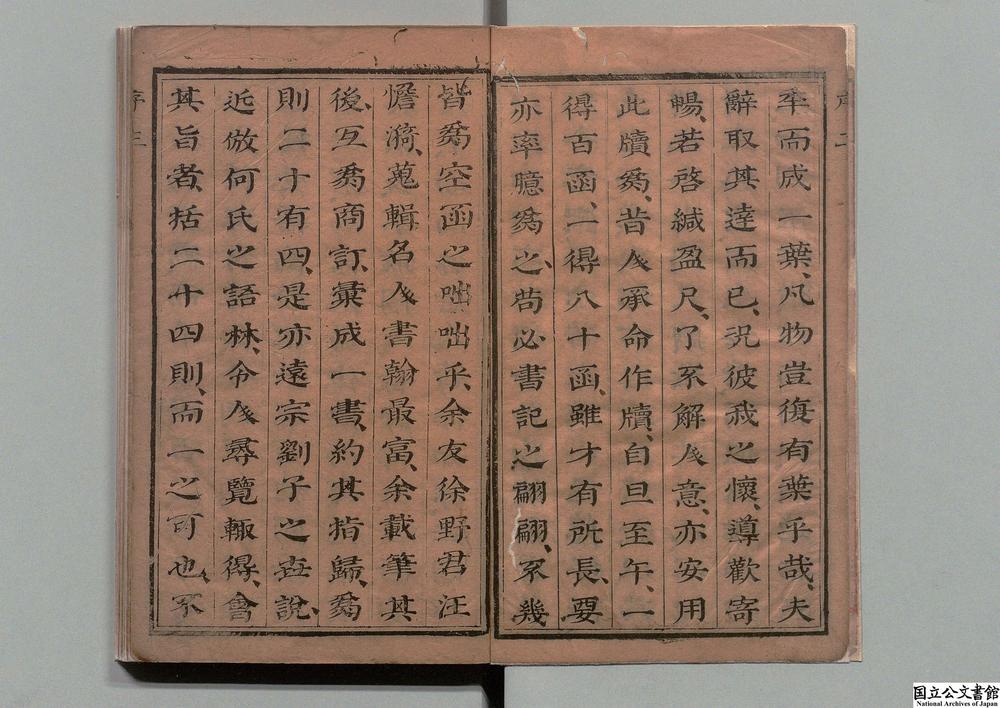 年而成一葉、凡物豈復有葉乎哉、夫
辭取其達而已、況彼我之懷、導歡寄
暢、若啓緘盈尺、了不解人意、亦安用
此牘爲、昔人承命作牘、自旦至午、一
得百函、一得八十函、雖才有所長、要
亦率臆爲之、苟必書記之翩翩、不幾
皆爲空函之咄咄乎、余友徐野君汪
憺漪、蒐輯名人書翰最富、余載筆其
後、互爲商訂、彙成一書、約其指歸、爲
則二十有四、是亦遠宗劉子之世說、
近倣何氏之語林、令人尋覽輙得、會
其旨者、括二十四則、而一之可也、不
序二
序三
国立公文書館
National Archives of Japan